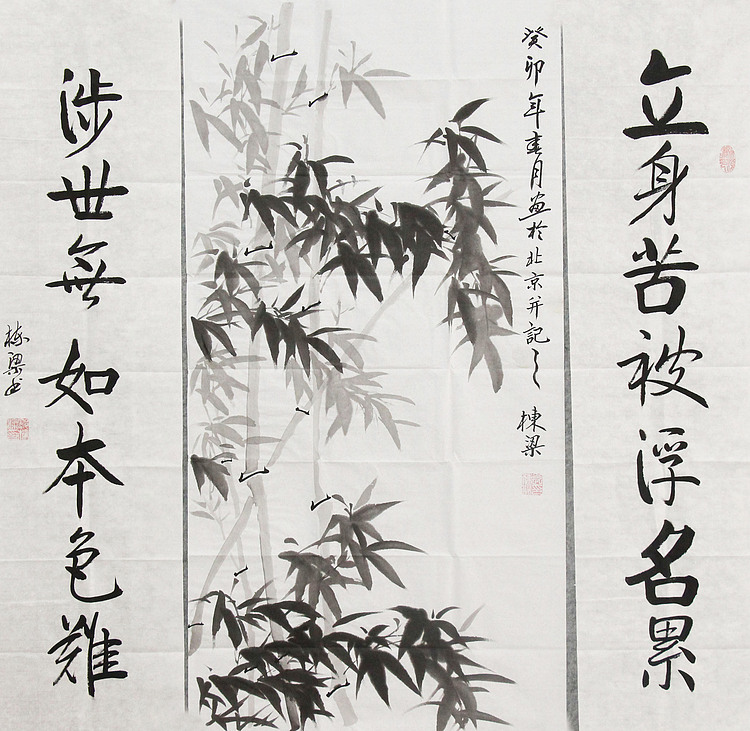 立身苦被浮名累
癸卯年春月画於北京并記之
棟梁
涉世無如本色難
棟梁书